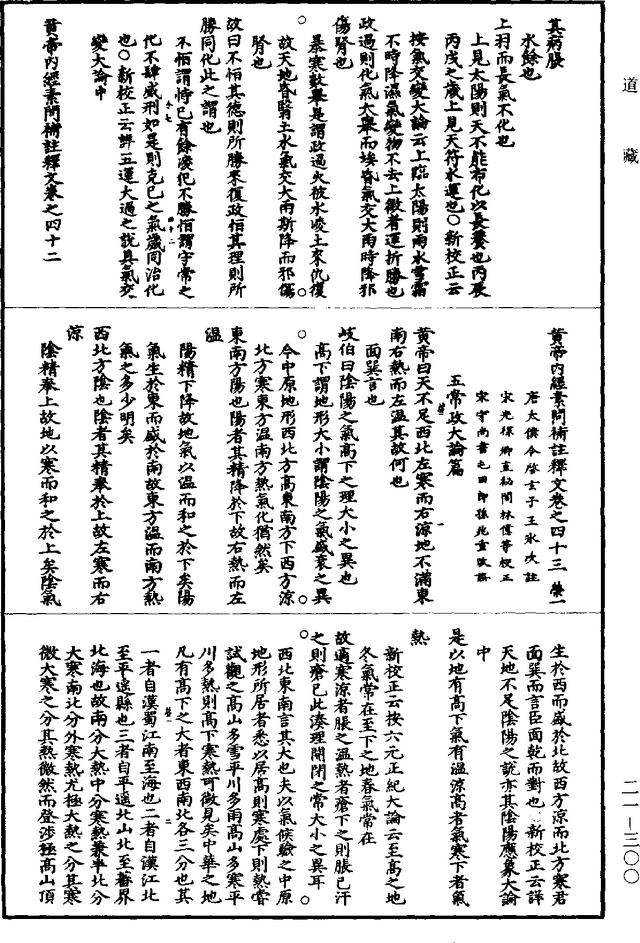 道藏
其病脹
水餘也
上羽而長氣不化也
上見太陽則天不能布化以長養也丙辰
丙戌之歲上見天符水運也○新校正云
按氣交變大論云上臨太陽則雨冰雪霜
不時降濕氣變物不去上徵者運折勝也
政過則化氣大舉而埃昏氣交大雨時降邪
傷腎也
暴寒數舉是謂政過火被水凌土來仇復
故天地昏翳土水氣交大雨斯降而邪傷
腎也
故曰不恒其德則所勝來復政恒其理則所
勝同化此之謂也
不恒謂恃己有餘凌犯不勝恒謂守常之
化不肆威刑如是則克己之氣歲同治化
也○新校正云詳五運太過之說具氣交
變大論中
黃帝內經素問補註釋文卷之四十二
黃帝內經素問補註釋文卷之四十三
唐太僕令啓玄子王冰次註
宋光祿卿直秘閣林億等校正
宋守尚書屯田郎孫兆重改誤
五常政大論篇
黃帝曰天不足西北左寒而右涼地不滿東
南右熱而左溫其故何也
面巽言也
岐伯曰陰陽之氣高下之理大小之異也
高下謂地形大小謂陰陽之氣盛衰之異
今中原地形西北方高東南方下西方涼
北方寒東方溫南方熱氣化猶然矣
東南方陽也陽者其精降於下故右熱而左
溫
陽精下降故地氣以溫而和之於下矣陽
氣生於東而盛於南故東方溫而南方熱
氣之多少明矣
西北方陰也陰者其精奉於上故左寒而右
涼
陰精奉上故地以寒而和之於上矣陰氣
生於西而盛於北故西方涼而北方寒君
面巽而言臣面乾而對也○新校正云詳
天地不足陰陽之說亦具陰陽應象大論
中
是以地有高下氣有溫涼高者氣寒下者氣
熱
新校正云按六元正紀大論云至高之地
冬氣常在至下之地春氣常在
故適寒涼者脹之溫熱者瘡下之則脹已汗
之則瘡已此湊理開閉之常大小之異耳
西北東南言其大也夫以氣候驗之中原
地形所居者悉以居高則寒處下則熱嘗
試觀之高山多雪平川多雨高山多寒平
川多熱則高下寒熱可徵見矣中華之地
凡有高下之大者東西南北各三分也其
一者自漢蜀江南至海也二者自漢江北
至平遙縣也三者自平遙北山北至蕃界
北海也故南分大熱中分寒熱兼半北分
大寒南北分外寒熱尤極大熱之分其寒
微大寒之分其熱微然而登涉極高山頂
二一—三〇〇